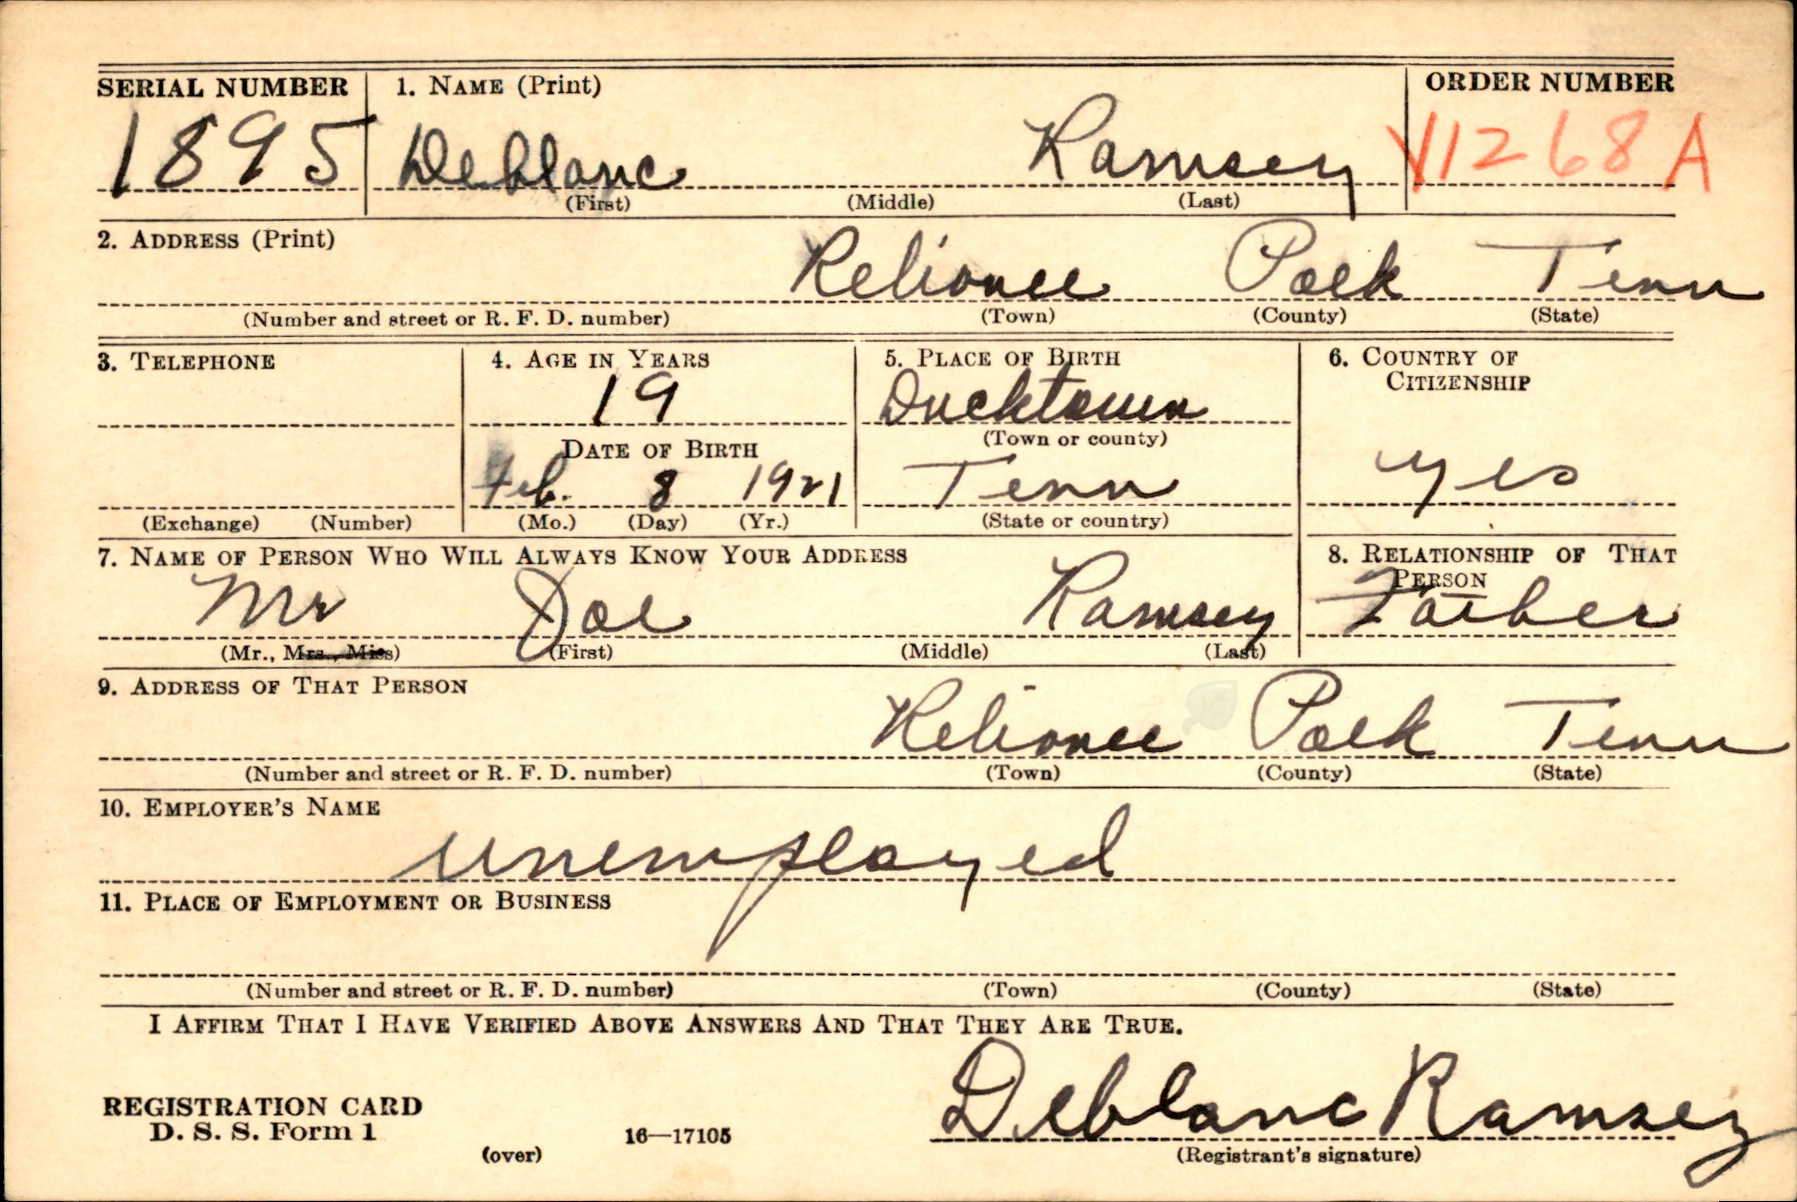 SERIAL NUMBER 1. NAME (Print) ORDER NUMBER
1895 Deblanc Ramsey V1268A
(First) (Middle) (Last)
2. ADDRESS (Print)
Reliance Polk Tenn
(Number and street or R. F. D. number) (Town) (County) (State)
3. TELEPHONE 4. AGE IN YEARS 5. PLACE OF BIRTH 6. COUNTRY OF CITIZENSHIP
19 Ducktown
DATE OF BIRTH (Town or county)
Feb. 8 1921 Tenn yes
(Exchange) (Number) (Mo.) (Day) (Yr.) (State or country)
7. NAME OF PERSON WHO WILL ALWAYS KNOW YOUR ADDRESS 8. RELATIONSHIP OF THAT PERSON
Mr Joe Ramsey Father
(Mr., Mrs., Miss) (First) (Middle) (Last)
9. ADDRESS OF THAT PERSON
Reliance Polk Tenn
(Number and street or R. F. D. number) (Town) (County) (State)
10. EMPLOYER'S NAME
unemployed
11. PLACE OF EMPLOYMENT OR BUSINESS
(Number and street or R. F. D. number) (Town) (County) (State)
I AFFIRM THAT I HAVE VERIFIED ABOVE ANSWERS AND THAT THEY ARE TRUE.
Deblanc Ramsey
REGISTRATION CARD
D. S. S. Form 1 16—17105
(over) (Registrant's signature)